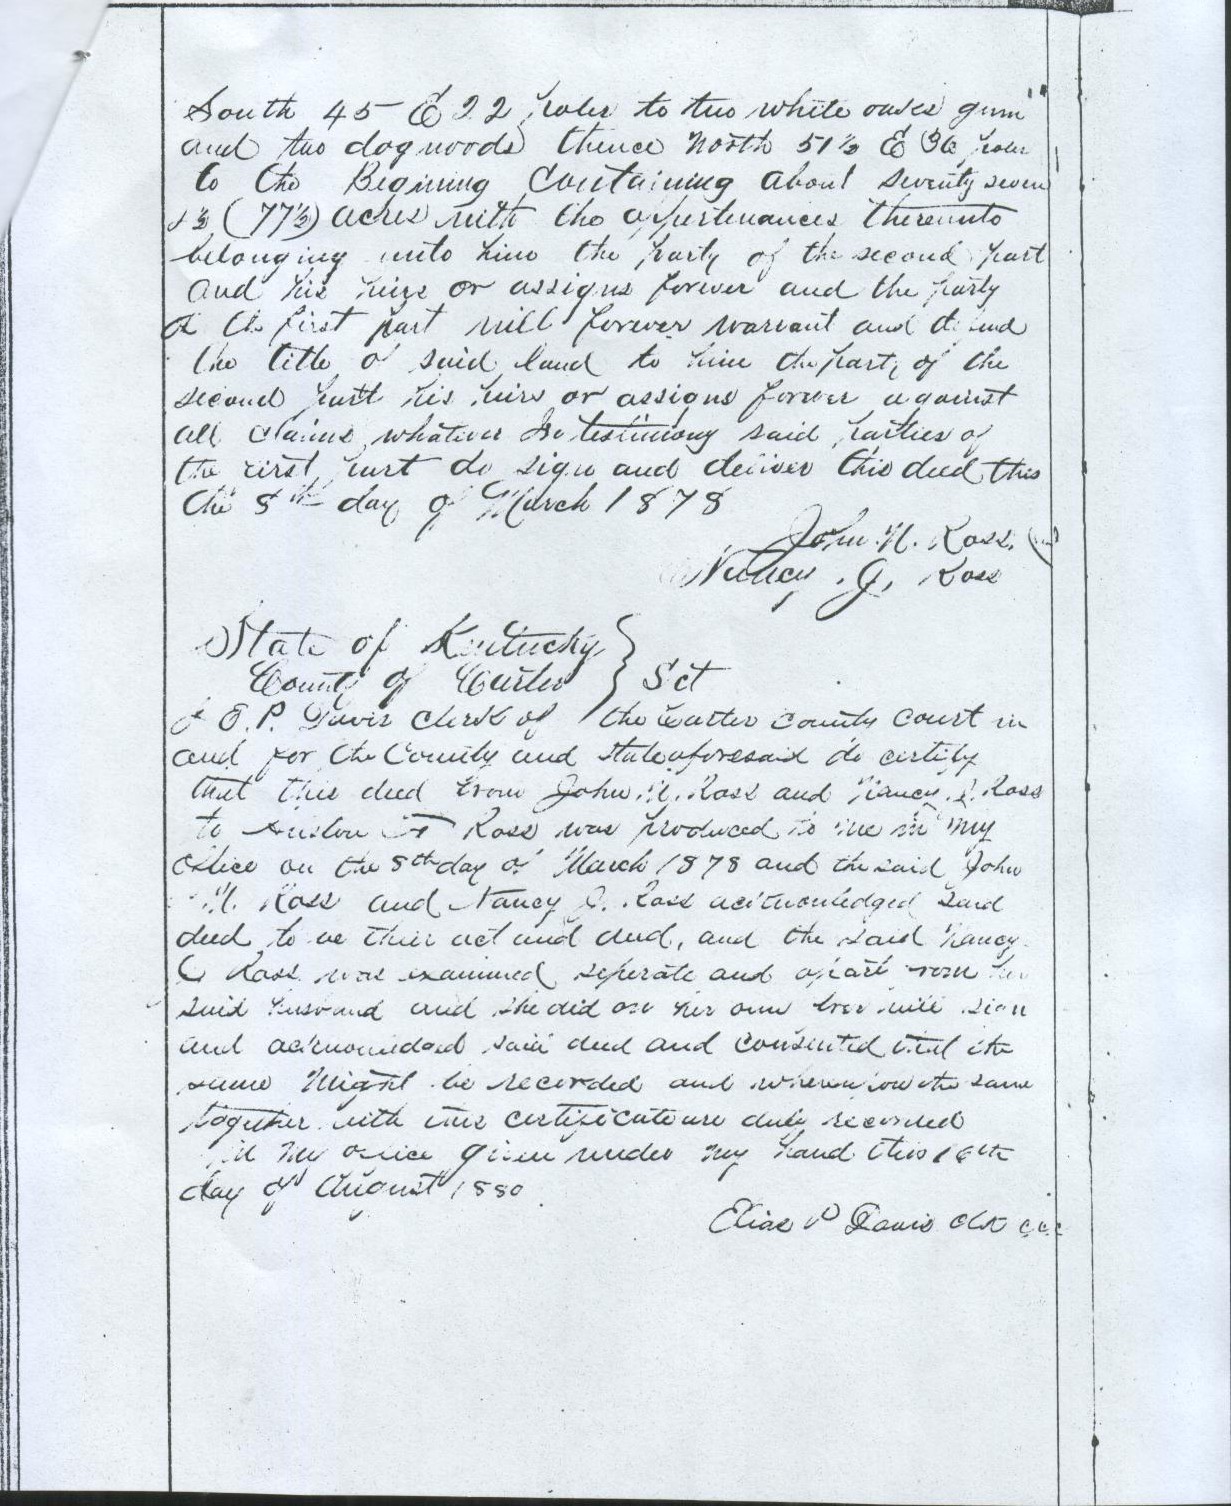 South 45 E 22 poles to two white oakes gum
and two dogwoods thence North 51½ E 36 poles
to the Begining Containing about seventy seven
½ (77½) acres with the appertenances thereunto
belonging unto him the party of the second part
and his heirs or assigns forever and the party
of the first part will forever warrant and defend
the title of said land to him the party of the
second part his heirs or assigns forever against
all claims whatever In testimony said parties of
the first part do sign and deliver this deed this
the 8th day of March 1878
John M. Ross
Nancy J. Ross
State of Kentucky
County of Carter } Sct
I E. P. Davis clerk of the Carter County Court in
and for the County and State aforesaid do certify
that this deed from John M. Ross and Nancy J. Ross
to Ross was produced to me in my
office on the 8th day of March 1878 and the said John
M. Ross and Nancy J. Ross acknowledged said
deed to be their act and deed, and the said Nancy
Ross was examined seperate and apart from her
said husband and she did on her own free will sign
and acknowledged said deed and consented that the
same Might be recorded and whereupon the same
together with this certificate are duly recorded
in my office given under my hand this 16th
day of August 1880
Elias P Davis Clk C.C.C